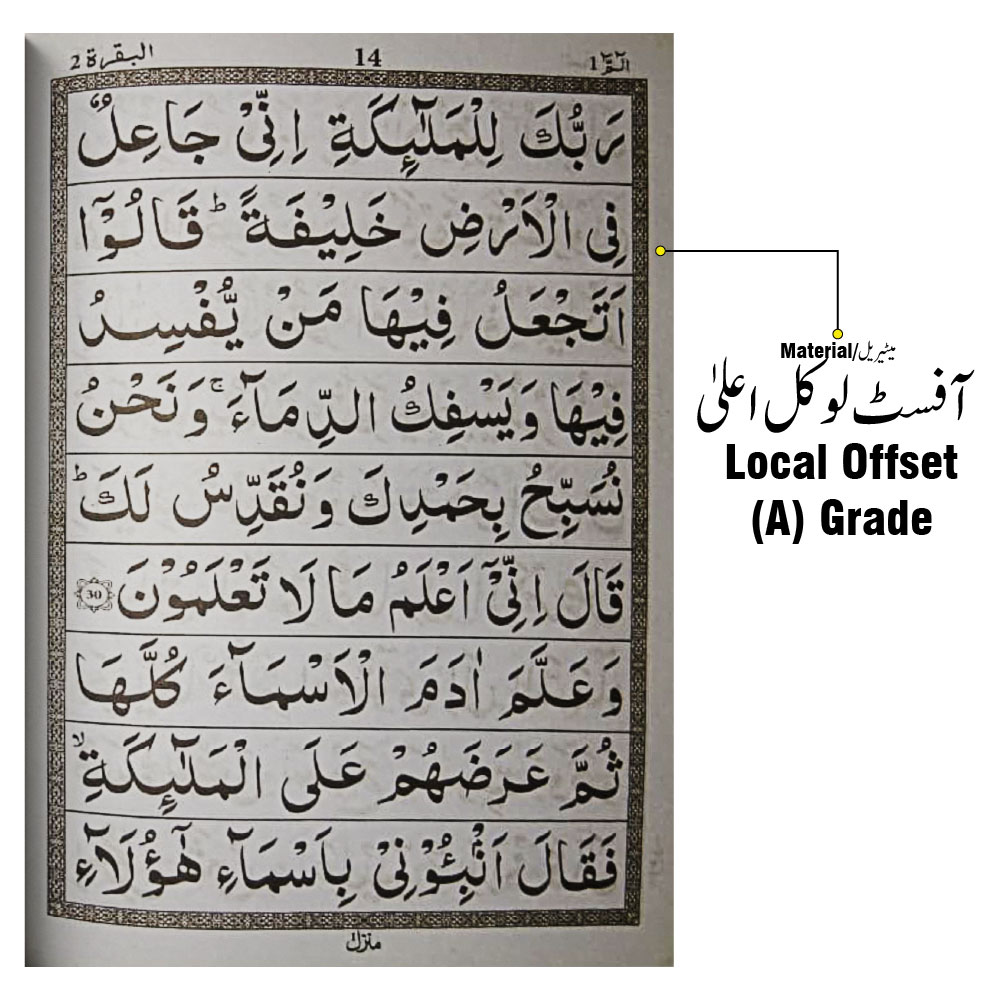 البقرة 2
14
الٓمّٓ 1
رَبُّكَ لِلْمَلٰٓئِكَةِ اِنِّيْ جَاعِلٌ
فِي الْاَرْضِ خَلِيْفَةً ؕ قَالُوْٓا
اَتَجْعَلُ فِيْهَا مَنْ يُّفْسِدُ
فِيْهَا وَيَسْفِكُ الدِّمَآءَ ۚ وَنَحْنُ
نُسَبِّحُ بِحَمْدِكَ وَنُقَدِّسُ لَكَ ؕ
قَالَ اِنِّيْٓ اَعْلَمُ مَا لَا تَعْلَمُوْنَ 30
وَعَلَّمَ اٰدَمَ الْاَسْمَآءَ كُلَّهَا
ثُمَّ عَرَضَهُمْ عَلَى الْمَلٰٓئِكَةِ ۙ
فَقَالَ اَنْۢبِـُٔوْنِيْ بِاَسْمَآءِ هٰٓؤُلَآءِ
Material/میٹیریل
آفسٹ لوکل اعلیٰ
Local Offset
(A) Grade